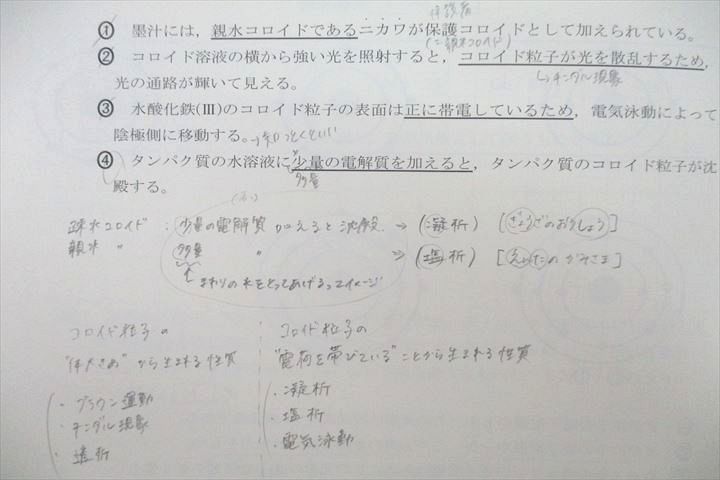 保護剤
① 墨汁には，親水コロイドであるニカワが保護コロイドとして加えられている。
(=親水コロイド)
② コロイド溶液の横から強い光を照射すると，コロイド粒子が光を散乱するため，
光の通路が輝いて見える。
↳チンダル現象
③ 水酸化鉄(Ⅲ)のコロイド粒子の表面は正に帯電しているため，電気泳動によって
陰極側に移動する。→知っとくといい
④ タンパク質の水溶液に少量の電解質を加えると，タンパク質のコロイド粒子が沈
多量
殿する。
疎水コロイド：少量の電解質 加えると沈殿 ⇒ (凝析) [ぎょうざのおうしょう]
親水 〃 多量 〃 ⇒ (塩析) [えんたのかみさま]
まわりの水をとってあげるってイメージ
コロイド粒子の
"体大きめ" から生まれる性質
・ブラウン運動
・チンダル現象
・透析
コロイド粒子の
"電荷を帯びている" ことから生まれる性質
・凝析
・塩析
・電気泳動